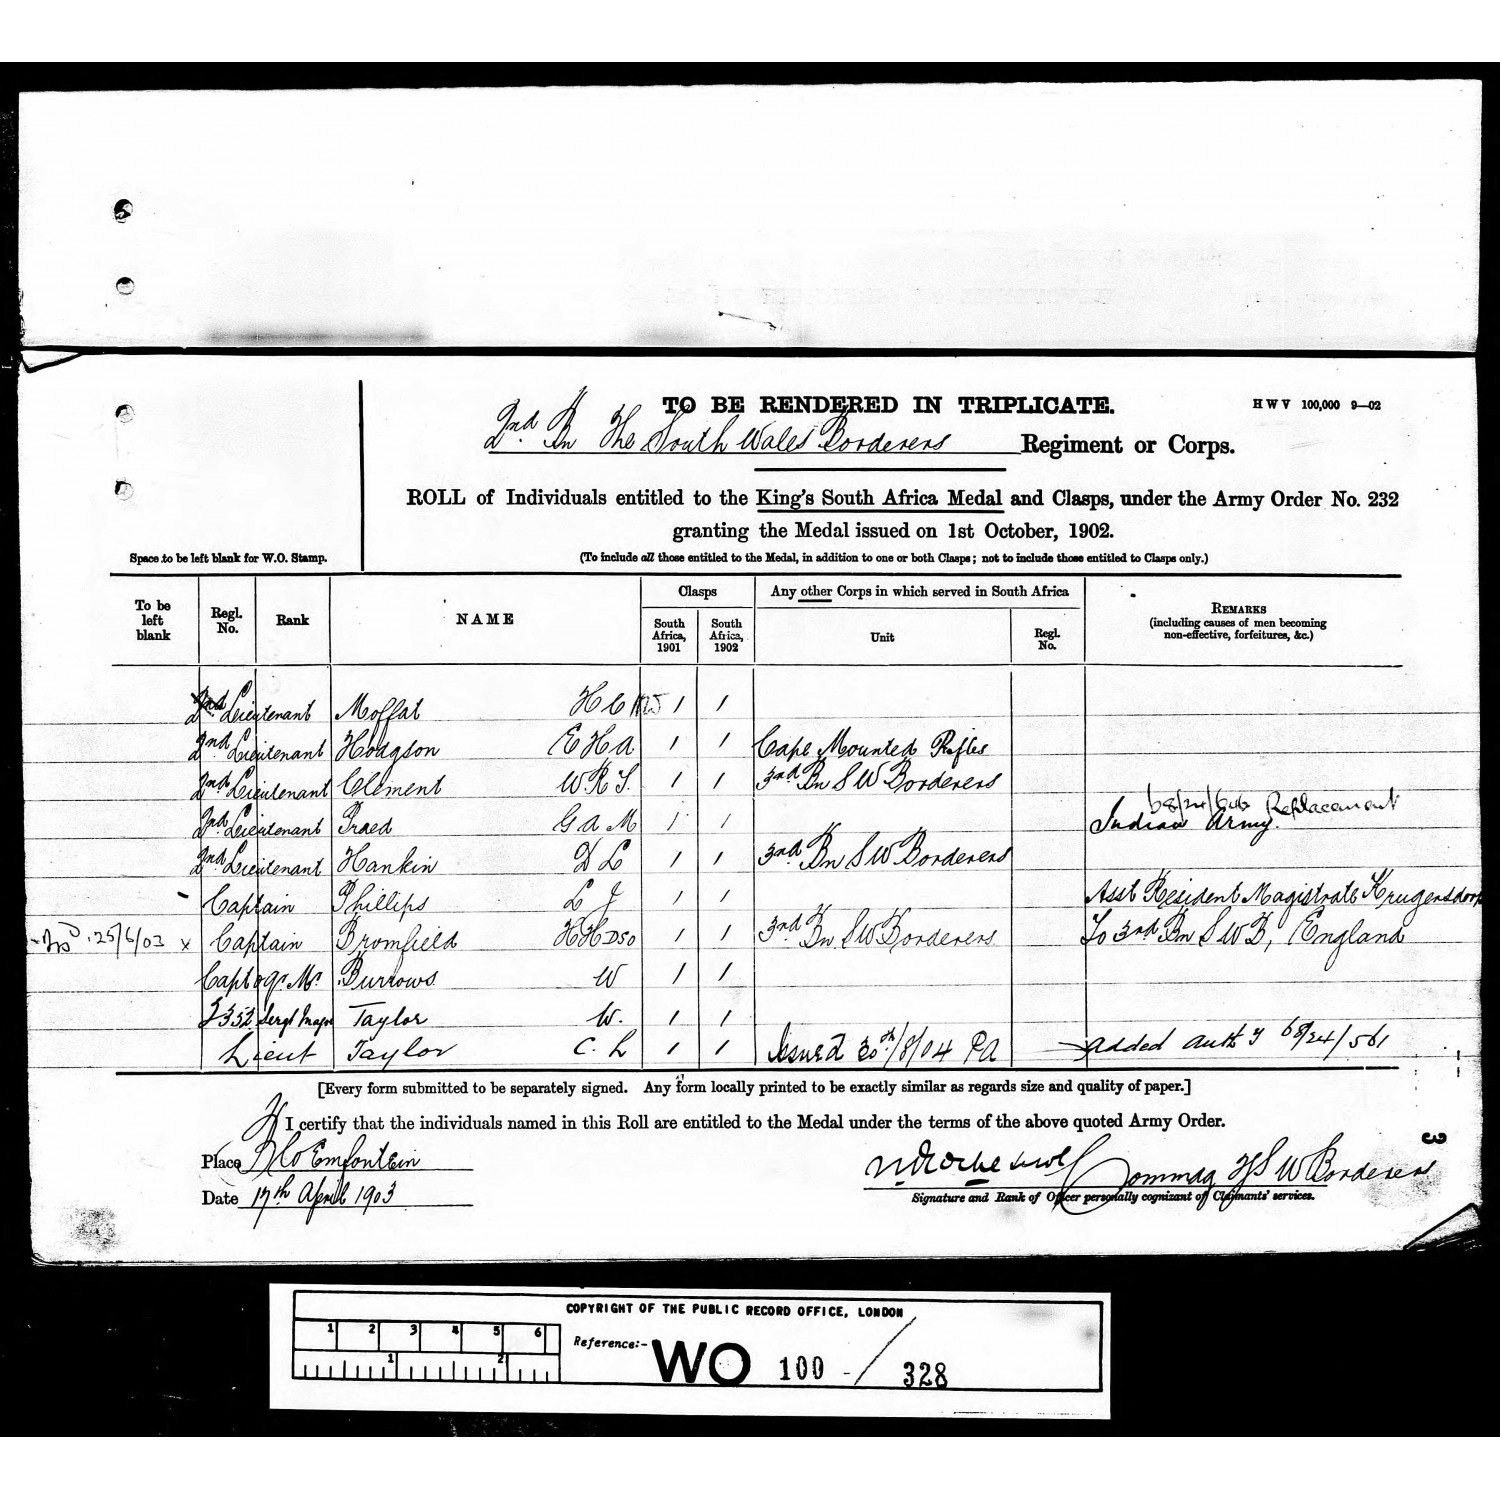 TO BE RENDERED IN TRIPLICATE.
H W V 100,000 9—02
2nd Bn The South Wales Borderers Regiment or Corps.
ROLL of Individuals entitled to the King's South Africa Medal and Clasps, under the Army Order No. 232
granting the Medal issued on 1st October, 1902.
Space to be left blank for W.O. Stamp.
(To include all those entitled to the Medal, in addition to one or both Clasps; not to include those entitled to Clasps only.)
To be left blank
Regl. No.
Rank
NAME
Clasps
South Africa, 1901
South Africa, 1902
Any other Corps in which served in South Africa
Unit
Regl. No.
REMARKS
(including causes of men becoming non-effective, forfeitures, &c.)
2nd Lieutenant Moffat H C 1 1
2nd Lieutenant Hodgson E H A 1 1 Cape Mounted Rifles
2nd Lieutenant Clement W. R. S. 1 1 3rd Bn S W Borderers
68/24/646 Replacement
2nd Lieutenant Praed G A M 1 1 Indian Army.
2nd Lieutenant Hankin D L 1 1 3rd Bn S W Borderers
Captain Phillips L J 1 1 Asst Resident Magistrate Krugersdorp
25/6/03 x Captain Bromfield H H DSO 1 1 3rd Bn S W Borderers To 3rd Bn S W B, England
Capt & Qr. Mr. Burrows W 1 1
Sergt Major Taylor W. 1 1
Lieut Taylor C. L 1 1 Issued 30th/8/04 PA added auth y 68/24/561
[Every form submitted to be separately signed. Any form locally printed to be exactly similar as regards size and quality of paper.]
I certify that the individuals named in this Roll are entitled to the Medal under the terms of the above quoted Army Order.
3
Place Bloemfontein
Commdg 2/S W Borderers
Signature and Rank of Officer personally cognizant of Claimants' services.
Date 17th April 1903
COPYRIGHT OF THE PUBLIC RECORD OFFICE, LONDON
1 2 3 4 5 6
1 2
Reference:-
WO 100 / 328